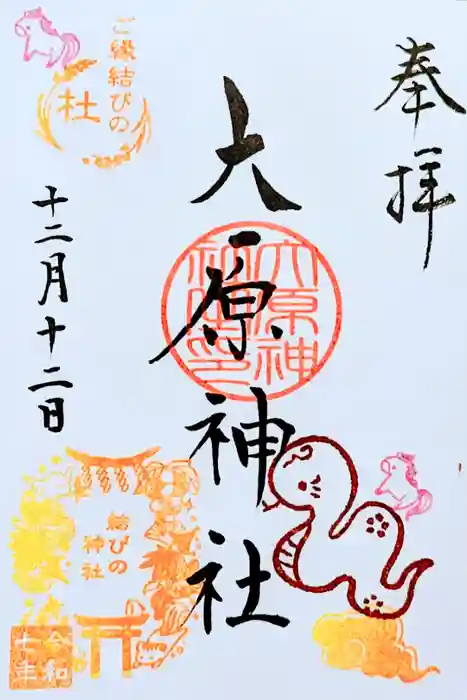 奉拝
六原神社
十二月十二日
ご縁結びの
杜
結びの
神社
令和
七年